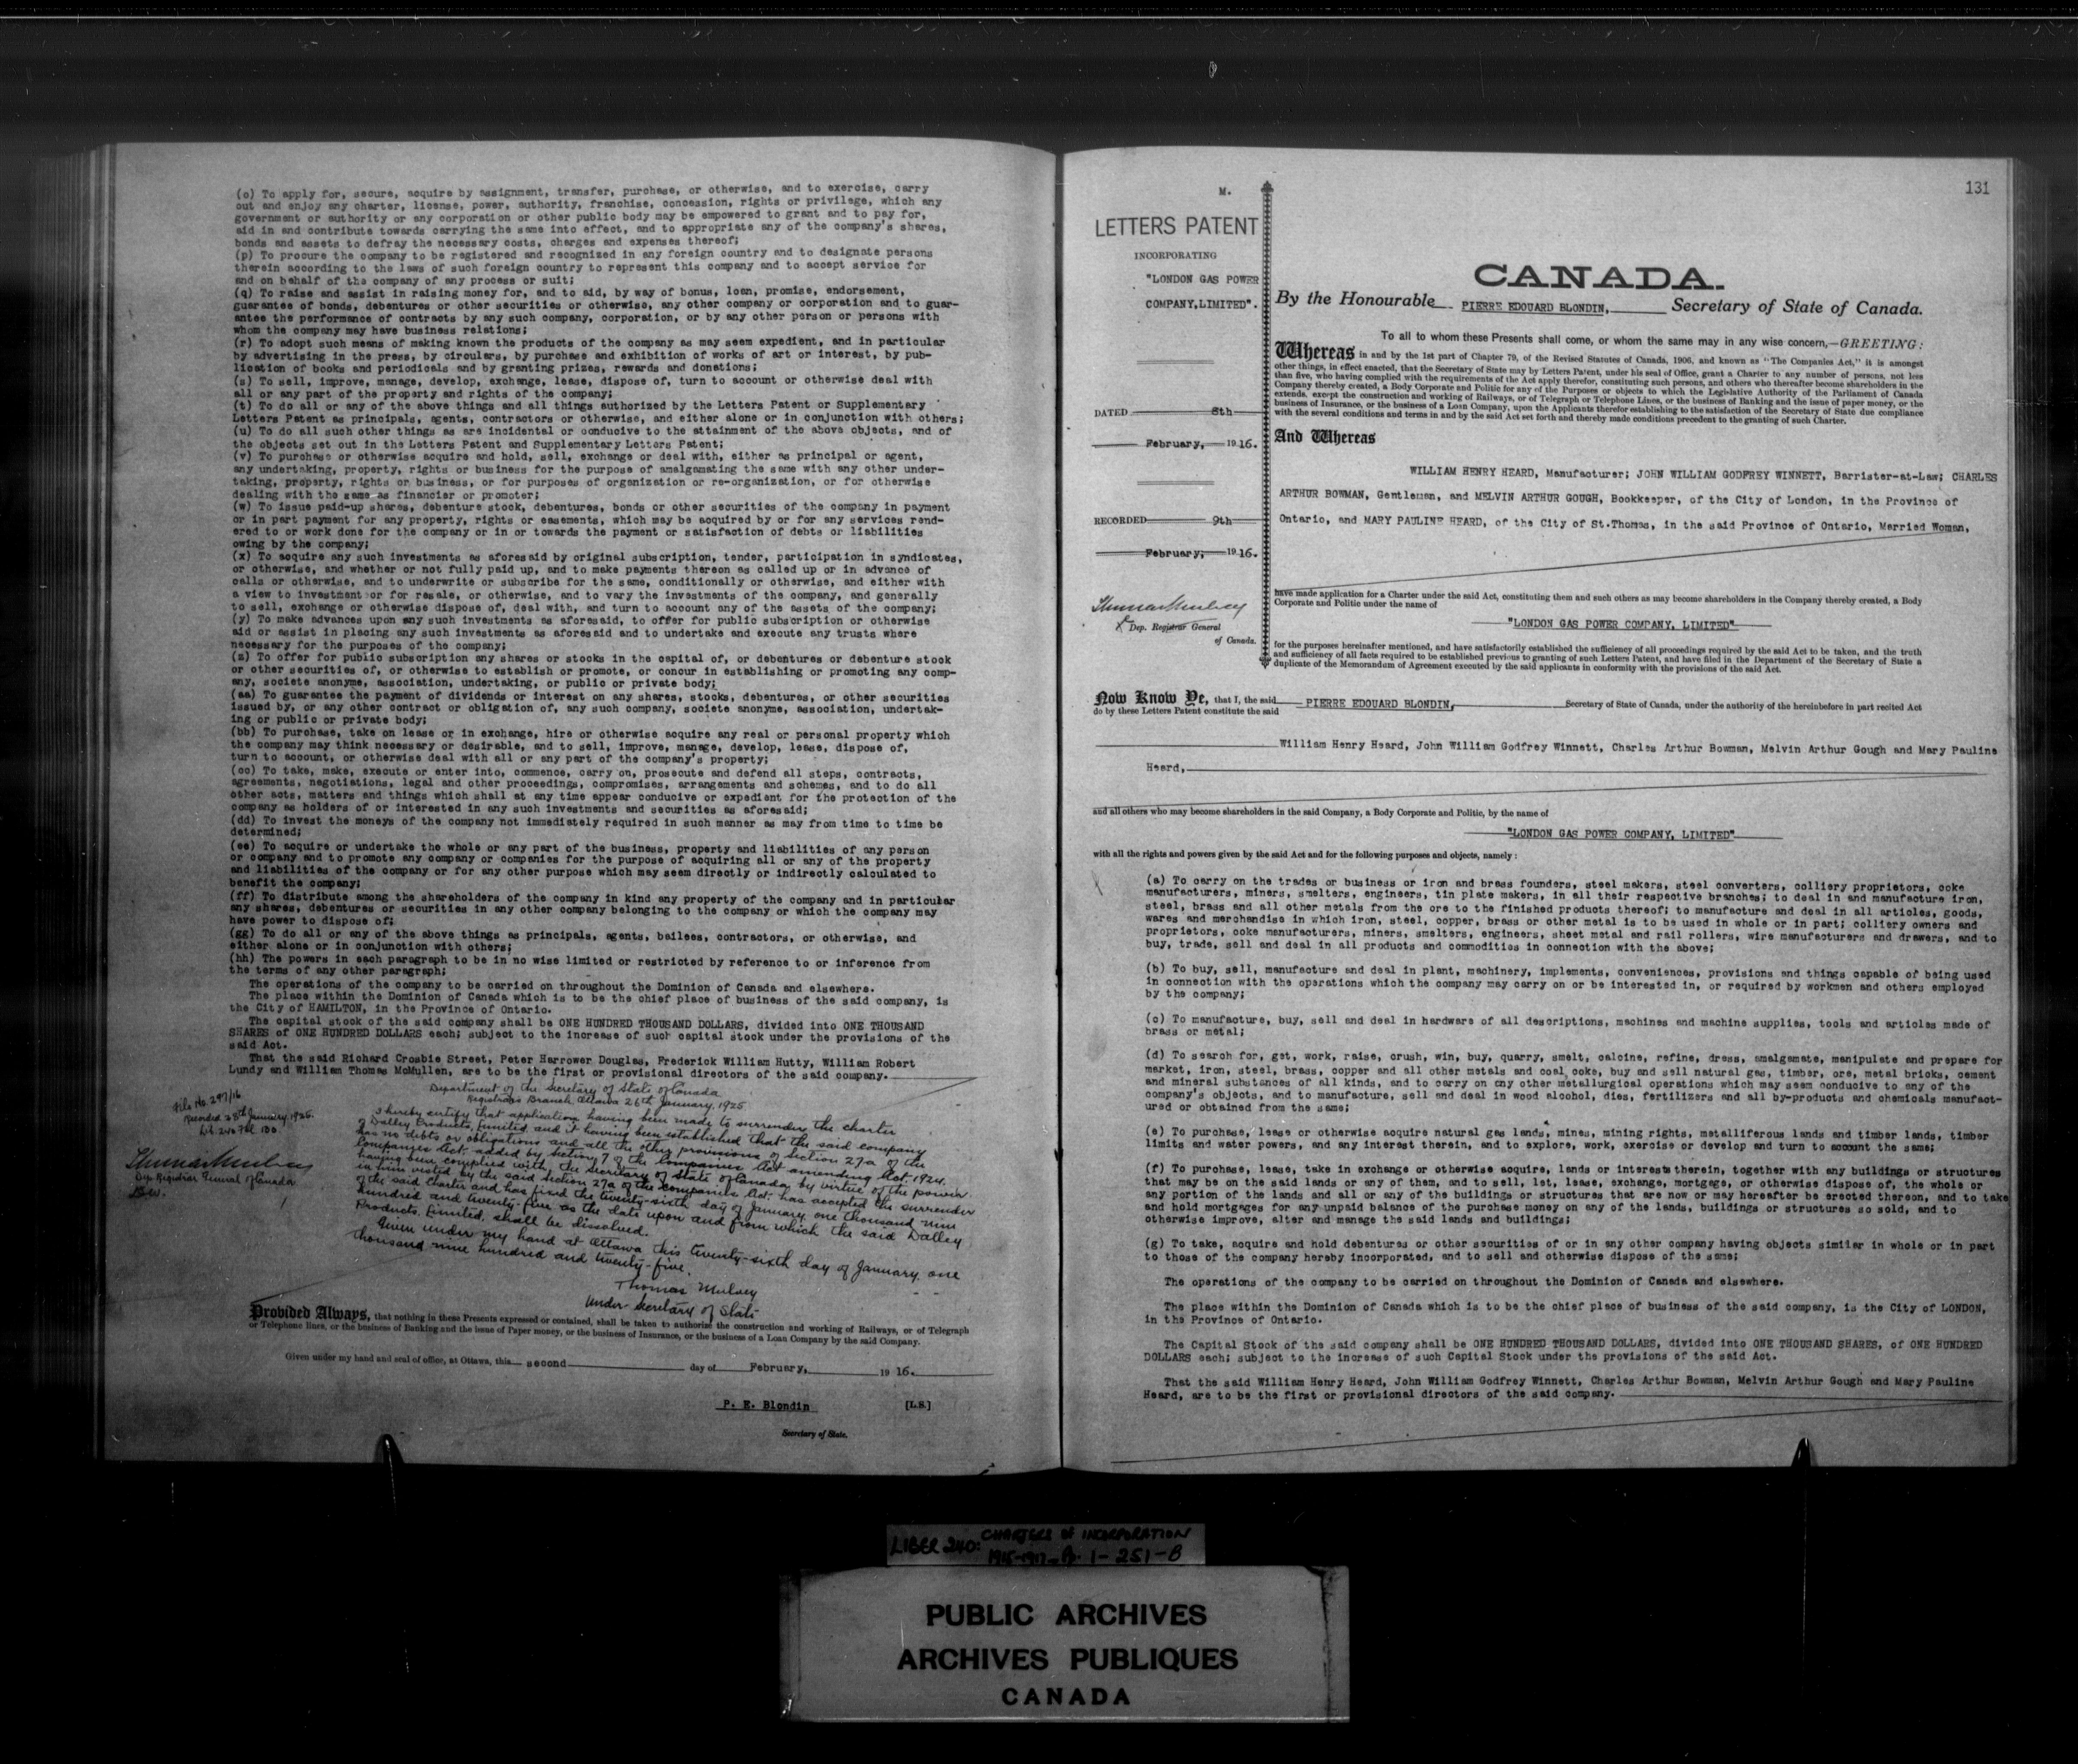 (o) To apply for, secure, acquire by assignment, transfer, purchase, or otherwise, and to exercise, carry
out and enjoy any charter, license, power, authority, franchise, concession, rights or privilege, which any
government or authority or any corporation or other public body may be empowered to grant and to pay for,
aid in and contribute towards carrying the same into effect, and to appropriate any of the company's shares,
bonds and assets to defray the necessary costs, charges and expenses thereof;
(p) To procure the company to be registered and recognized in any foreign country and to designate persons
therein according to the laws of such foreign country to represent this company and to accept service for
and on behalf of the company of any process or suit;
(q) To raise and assist in raising money for, and to aid, by way of bonus, loan, promise, endorsement,
guarantee of bonds, debentures or other securities or otherwise, any other company or corporation and to guar-
antee the performance of contracts by any such company, corporation, or by any other person or persons with
whom the company may have business relations;
(r) To adopt such means of making known the products of the company as may seem expedient, and in particular
by advertising in the press, by circulars, by purchase and exhibition of works of art or interest, by pub-
lication of books and periodicals and by granting prizes, rewards and donations;
(s) To sell, improve, manage, develop, exchange, lease, dispose of, turn to account or otherwise deal with
all or any part of the property and rights of the company;
(t) To do all or any of the above things and all things authorized by the Letters Patent or Supplementary
Letters Patent as principals, agents, contractors or otherwise, and either alone or in conjunction with others;
(u) To do all such other things as are incidental or conducive to the attainment of the above objects, and of
the objects set out in the Letters Patent and Supplementary Letters Patent;
(v) To purchase or otherwise acquire and hold, sell, exchange or deal with, either as principal or agent,
any undertaking, property, rights or business for the purpose of amalgamating the same with any other under-
taking, property, rights or business, or for purposes of organization or re-organization, or for otherwise
dealing with the same as financier or promoter;
(w) To issue paid-up shares, debenture stock, debentures, bonds or other securities of the company in payment
or in part payment for any property, rights or easements, which may be acquired by or for any services rend-
ered to or work done for the company or in or towards the payment or satisfaction of debts or liabilities
owing by the company;
(x) To acquire any such investments as aforesaid by original subscription, tender, participation in syndicates,
or otherwise, and whether or not fully paid up, and to make payments thereon as called up or in advance of
calls or otherwise, and to underwrite or subscribe for the same, conditionally or otherwise, and either with
a view to investment or for resale, or otherwise, and to vary the investments of the company, and generally
to sell, exchange or otherwise dispose of, deal with, and turn to account any of the assets of the company;
(y) To make advances upon any such investments as aforesaid, to offer for public subscription or otherwise
aid or assist in placing any such investments as aforesaid and to undertake and execute any trusts where
necessary for the purposes of the company;
(z) To offer for public subscription any shares or stocks in the capital of, or debentures or debenture stock
or other securities of, or otherwise to establish or promote, or concur in establishing or promoting any comp-
any, societe anonyme, association, undertaking, or public or private body;
(aa) To guarantee the payment of dividends or interest on any shares, stocks, debentures, or other securities
issued by, or any other contract or obligation of, any such company, societe anonyme, association, undertak-
ing or public or private body;
(bb) To purchase, take on lease or in exchange, hire or otherwise acquire any real or personal property which
the company may think necessary or desirable, and to sell, improve, manage, develop, lease, dispose of,
turn to account, or otherwise deal with all or any part of the company's property;
(cc) To take, make, execute or enter into, commence, carry on, prosecute and defend all steps, contracts,
agreements, negotiations, legal and other proceedings, compromises, arrangements and schemes, and to do all
other acts, matters and things which shall at any time appear conducive or expedient for the protection of the
company as holders of or interested in any such investments and securities as aforesaid;
(dd) To invest the moneys of the company not immediately required in such manner as may from time to time be
determined;
(ee) To acquire or undertake the whole or any part of the business, property and liabilities of any person
or company and to promote any company or companies for the purpose of acquiring all or any of the property
and liabilities of the company or for any other purpose which may seem directly or indirectly calculated to
benefit the company;
(ff) To distribute among the shareholders of the company in kind any property of the company and in particular
any shares, debentures or securities in any other company belonging to the company or which the company may
have power to dispose of;
(gg) To do all or any of the above things as principals, agents, bailees, contractors, or otherwise, and
either alone or in conjunction with others;
(hh) The powers in each paragraph to be in no wise limited or restricted by reference to or inference from
the terms of any other paragraph;
The operations of the company to be carried on throughout the Dominion of Canada and elsewhere.
The place within the Dominion of Canada which is to be the chief place of business of the said company, is
the City of HAMILTON, in the Province of Ontario.
The capital stock of the said company shall be ONE HUNDRED THOUSAND DOLLARS, divided into ONE THOUSAND
SHARES of ONE HUNDRED DOLLARS each; subject to the increase of such capital stock under the provisions of the
said Act.
That the said Richard Crosbie Street, Peter Harrower Douglas, Frederick William Hutty, William Robert
Lundy and William Thomas McMullen, are to be the first or provisional directors of the said company.
Department of the Secretary of State of Canada
Registrar's Branch Ottawa 26th January, 1925
File No. 297/16
Recorded 28th January, 1925.
Lib. 240 Fol. 130.
Thomas Mulvey
Dep. Registrar General of Canada
I hereby certify that application having been made to surrender the charter
of Dalley Products, Limited, and it having been established that the said company
has no debts or obligations and all the other provisions of Section 27a of the
Companies Act, added by section 7 of the Companies Act amending Act, 1924,
having been complied with, the Secretary of State of Canada, by virtue of the power
in him vested by the said Section 27a of the Companies Act, has accepted the surrender
of the said Charter and has fixed the twenty-sixth day of January one thousand nine
hundred and twenty-five as the date upon and from which the said Dalley
Products, Limited, shall be dissolved.
Given under my hand at Ottawa this twenty-sixth day of January one
thousand nine hundred and twenty-five.
Thomas Mulvey
Under-Secretary of State
Provided Always, that nothing in these Presents expressed or contained, shall be taken to authorize the construction and working of Railways, or of Telegraph
or Telephone lines, or the business of Banking and the issue of Paper money, or the business of Insurance, or the business of a Loan Company by the said Company.
Given under my hand and seal of office, at Ottawa, this second day of February, 19 16.
P. E. Blondin [L.S.]
Secretary of State.
131
M.
LETTERS PATENT
INCORPORATING
"LONDON GAS POWER
COMPANY,LIMITED".
DATED 8th
February, 19 16.
RECORDED 9th
February, 19 16.
Thomas Mulvey
Dep. Registrar General
of Canada.
CANADA.
By the Honourable PIERRE EDOUARD BLONDIN, Secretary of State of Canada.
To all to whom these Presents shall come, or whom the same may in any wise concern,—GREETING:
Whereas in and by the 1st part of Chapter 79, of the Revised Statutes of Canada, 1906, and known as "The Companies Act," it is amongst
other things, in effect enacted, that the Secretary of State may by Letters Patent, under his seal of Office, grant a Charter to any number of persons, not less
than five, who having complied with the requirements of the Act apply therefor, constituting such persons, and others who thereafter become shareholders in the
Company thereby created, a Body Corporate and Politic for any of the Purposes or objects to which the Legislative Authority of the Parliament of Canada
extends, except the construction and working of Railways, or of Telegraph or Telephone Lines, or the business of Banking and the issue of paper money, or the
business of Insurance, or the business of a Loan Company, upon the Applicants therefor establishing to the satisfaction of the Secretary of State due compliance
with the several conditions and terms in and by the said Act set forth and thereby made conditions precedent to the granting of such Charter.
And Whereas
WILLIAM HENRY HEARD, Manufacturer; JOHN WILLIAM GODFREY WINNETT, Barrister-at-Law; CHARLES
ARTHUR BOWMAN, Gentleman, and MELVIN ARTHUR GOUGH, Bookkeeper, of the City of London, in the Province of
Ontario, and MARY PAULINE HEARD, of the City of St.Thomas, in the said Province of Ontario, Married Woman,
have made application for a Charter under the said Act, constituting them and such others as may become shareholders in the Company thereby created, a Body
Corporate and Politic under the name of
"LONDON GAS POWER COMPANY, LIMITED"
for the purposes hereinafter mentioned, and have satisfactorily established the sufficiency of all proceedings required by the said Act to be taken, and the truth
and sufficiency of all facts required to be established previous to granting of such Letters Patent, and have filed in the Department of the Secretary of State a
duplicate of the Memorandum of Agreement executed by the said applicants in conformity with the provisions of the said Act.
Now Know Ye, that I, the said PIERRE EDOUARD BLONDIN, Secretary of State of Canada, under the authority of the hereinbefore in part recited Act
do by these Letters Patent constitute the said
William Henry Heard, John William Godfrey Winnett, Charles Arthur Bowman, Melvin Arthur Gough and Mary Pauline
Heard,
and all others who may become shareholders in the said Company, a Body Corporate and Politic, by the name of
"LONDON GAS POWER COMPANY, LIMITED"
with all the rights and powers given by the said Act and for the following purposes and objects, namely:
(a) To carry on the trades or business or iron and brass founders, steel makers, steel converters, colliery proprietors, coke
manufacturers, miners, smelters, engineers, tin plate makers, in all their respective branches; to deal in and manufacture iron,
steel, brass and all other metals from the ore to the finished products thereof; to manufacture and deal in all articles, goods,
wares and merchandise in which iron, steel, copper, brass or other metal is to be used in whole or in part; colliery owners and
proprietors, coke manufacturers, miners, smelters, engineers, sheet metal and rail rollers, wire manufacturers and drawers, and to
buy, trade, sell and deal in all products and commodities in connection with the above;
(b) To buy, sell, manufacture and deal in plant, machinery, implements, conveniences, provisions and things capable of being used
in connection with the operations which the company may carry on or be interested in, or required by workmen and others employed
by the company;
(c) To manufacture, buy, sell and deal in hardware of all descriptions, machines and machine supplies, tools and articles made of
brass or metal;
(d) To search for, get, work, raise, crush, win, buy, quarry, smelt, calcine, refine, dress, amalgamate, manipulate and prepare for
market, iron, steel, brass, copper and all other metals and coal, coke, buy and sell natural gas, timber, ore, metal bricks, cement
and mineral substances of all kinds, and to carry on any other metallurgical operations which may seem conducive to any of the
company's objects, and to manufacture, sell and deal in wood alcohol, dies, fertilizers and all by-products and chemicals manufact-
ured or obtained from the same;
(e) To purchase, lease or otherwise acquire natural gas lands, mines, mining rights, metalliferous lands and timber lands, timber
limits and water powers, and any interest therein, and to explore, work, exercise or develop and turn to account the same;
(f) To purchase, lease, take in exchange or otherwise acquire, lands or interests therein, together with any buildings or structures
that may be on the said lands or any of them, and to sell, let, lease, exchange, mortgage, or otherwise dispose of, the whole or
any portion of the lands and all or any of the buildings or structures that are now or may hereafter be erected thereon, and to take
and hold mortgages for any unpaid balance of the purchase money on any of the lands, buildings or structures so sold, and to
otherwise improve, alter and manage the said lands and buildings;
(g) To take, acquire and hold debentures or other securities of or in any other company having objects similar in whole or in part
to those of the company hereby incorporated, and to sell and otherwise dispose of the same;
The operations of the company to be carried on throughout the Dominion of Canada and elsewhere.
The place within the Dominion of Canada which is to be the chief place of business of the said company, is the City of LONDON,
in the Province of Ontario.
The Capital Stock of the said company shall be ONE HUNDRED THOUSAND DOLLARS, divided into ONE THOUSAND SHARES, of ONE HUNDRED
DOLLARS each; subject to the increase of such Capital Stock under the provisions of the said Act.
That the said William Henry Heard, John William Godfrey Winnett, Charles Arthur Bowman, Melvin Arthur Gough and Mary Pauline
Heard, are to be the first or provisional directors of the said company.
LIBER 240: CHARTERS OF INCORPORATION
1915-1917 - Pp. 1-251-B
PUBLIC ARCHIVES
ARCHIVES PUBLIQUES
CANADA